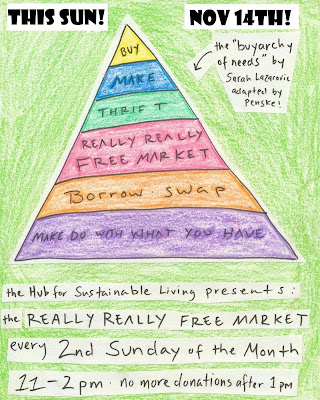 THIS SUN!
NOV 14TH!
the "buyarchy
of needs" by
Sarah Lazarovic
adapted by
Penske!
BUY
MAKE
THRIFT
REALLY REALLY
FREE MARKET
Borrow swap
MAKE DO WITH WHAT YOU HAVE
the Hub for Sustainable Living presents:
the REALLY REALLY FREE MARKET
every 2nd Sunday of the Month
11-2pm · no more donations after 1pm